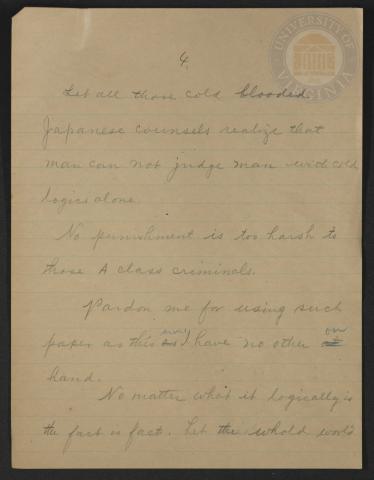 4.
Let all those cold blooded
Japanese counsels realize that
man can not judge man with cold
logics alone.
No punishment is too harsh to
those A class criminals.
Pardon me for using such
paper as this I have no other on
hand.
No matter what it logically is
the fact is fact. Let the whold world
UNIVERSITY OF VIRGINIA